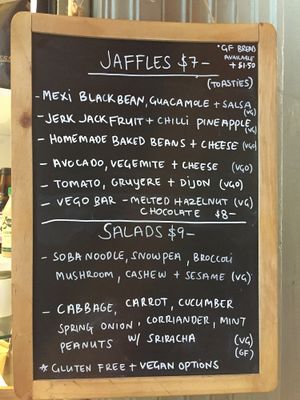 JAFFLES $7-
*GF BREAD
AVAILABLE
+ $1.50
(TOASTIES)
- MEXI BLACKBEAN, GUACAMOLE + SALSA (VG)
- JERK JACKFRUIT + CHILLI PINEAPPLE (VG)
- HOMEMADE BAKED BEANS + CHEESE (VGO)
- AVOCADO, VEGEMITE + CHEESE (VGO)
- TOMATO, GRUYERE + DIJON (VGO)
- VEGO BAR - MELTED HAZELNUT (VG)
CHOCOLATE $8-
SALADS $9-
- SOBA NOODLE, SNOWPEA, BROCCOLI
MUSHROOM, CASHEW + SESAME (VG)
- CABBAGE, CARROT, CUCUMBER
SPRING ONION, CORRIANDER, MINT
PEANUTS W/ SRIRACHA (VG)
(GF)
* GLUTEN FREE + VEGAN OPTIONS